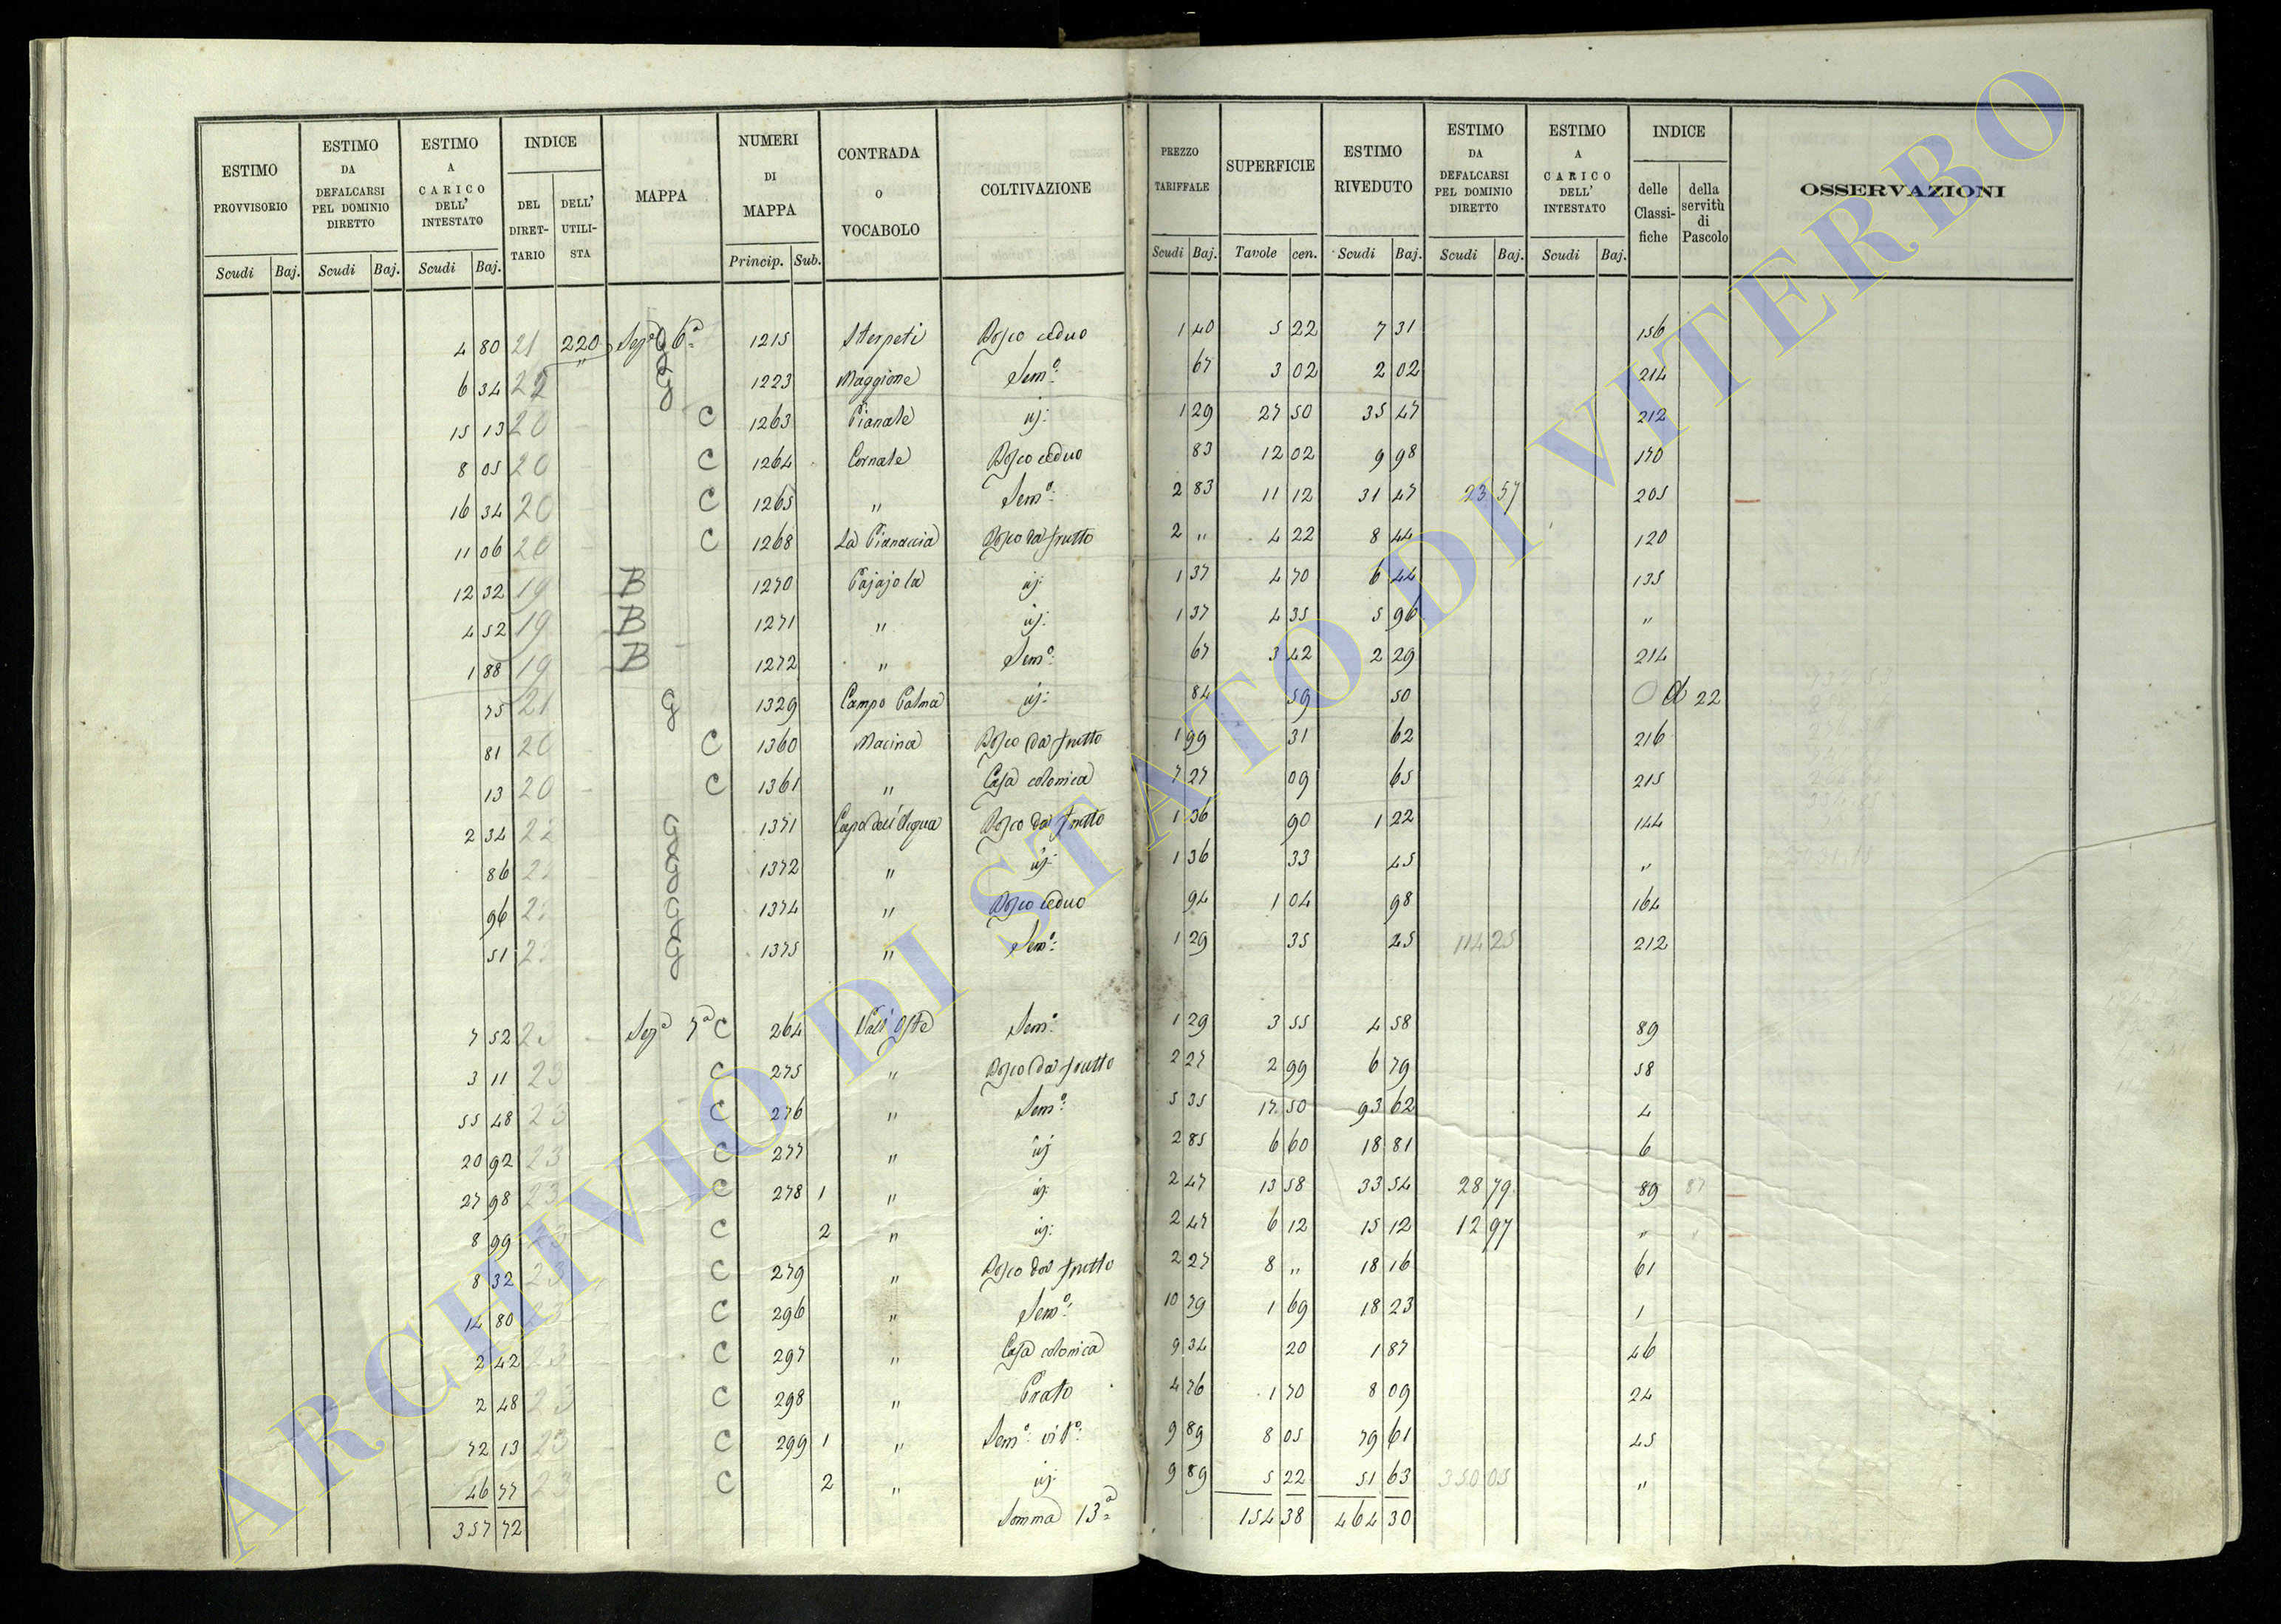 ESTIMO PROVVISORIO | ESTIMO DA DEFALCARSI PEL DOMINIO DIRETTO | ESTIMO A CARICO DELL' INTESTATO | INDICE | MAPPA | NUMERI DI MAPPA | CONTRADA o VOCABOLO | COLTIVAZIONE | PREZZO TARIFFALE | SUPERFICIE | ESTIMO RIVEDUTO | ESTIMO DA DEFALCARSI PEL DOMINIO DIRETTO | ESTIMO A CARICO DELL' INTESTATO | INDICE | OSSERVAZIONI
DEL DIRET-TARIO | DELL' UTILI-STA | delle Classi-fiche | della servitù di Pascolo
Scudi Baj. | Scudi Baj. | Scudi Baj. | Princip. Sub. | Scudi Baj. | Tavole cen. | Scudi Baj. | Scudi Baj. | Scudi Baj.
4 80 21 220 Sez.e 6a 1215 Sterpeti Bosco ceduo 1 40 5 22 7 31 156
6 34 22 " 1223 Maggione Sem.o 67 3 02 2 02 214
15 13 20 C 1263 Pianale id: 1 29 27 50 35 47 212
8 05 20 C 1264 Cornale Bosco ceduo 83 12 02 9 98 170
16 34 20 C 1265 " Sem.o 2 83 11 12 31 47 23 57 205
11 06 20 C 1268 La Pianaccia Bosco da frutto 2 " 4 22 8 44 120
12 32 19 B 1270 Pajajola id: 1 37 4 70 6 44 135
4 52 19 B 1271 " id: 1 37 4 35 5 96 "
1 88 19 B 1272 " Sem.o 67 3 42 2 29 214
75 21 g 1329 Campo Palma id: 84 59 50 22
81 20 C 1360 Macina Bosco da frutto 1 99 31 62 216
13 20 C 1361 " Casa colonica 7 27 09 65 215
2 34 22 1371 Capo dell'Acqua Bosco da frutto 1 36 90 1 22 144
86 22 1372 " id: 1 36 33 45 "
96 22 1374 " Bosco ceduo 94 1 04 98 164
51 22 1375 " Sem.o 1 29 35 45 114 25 212
7 52 23 Sez.e 7a C 264 Vall'Oste Sem.o 1 29 3 55 4 58 89
3 11 23 C 275 " Bosco da frutto 2 27 2 99 6 79 58
55 48 23 C 276 " Sem.o 5 35 17 50 93 62 4
20 92 23 C 277 " id 2 85 6 60 18 81 6
27 98 23 C 278 1 " id: 2 47 13 58 33 54 28 79 89 87
8 99 23 C 2 " id: 2 47 6 12 15 12 12 97 "
8 32 23 C 279 " Bosco da frutto 2 27 8 " 18 16 61
14 80 23 C 296 " Sem.o 10 79 1 69 18 23 1
2 42 23 C 297 " Casa colonica 9 34 20 1 87 46
2 48 23 C 298 " Prato 4 76 1 70 8 09 24
72 13 23 C 299 1 " Sem.o vit.o 9 89 8 05 79 61 45
46 77 23 C 2 " id: 9 89 5 22 51 63 350 05 "
357 72 Somma 13a 154 38 464 30
ARCHIVIO DI STATO DI VITERBO